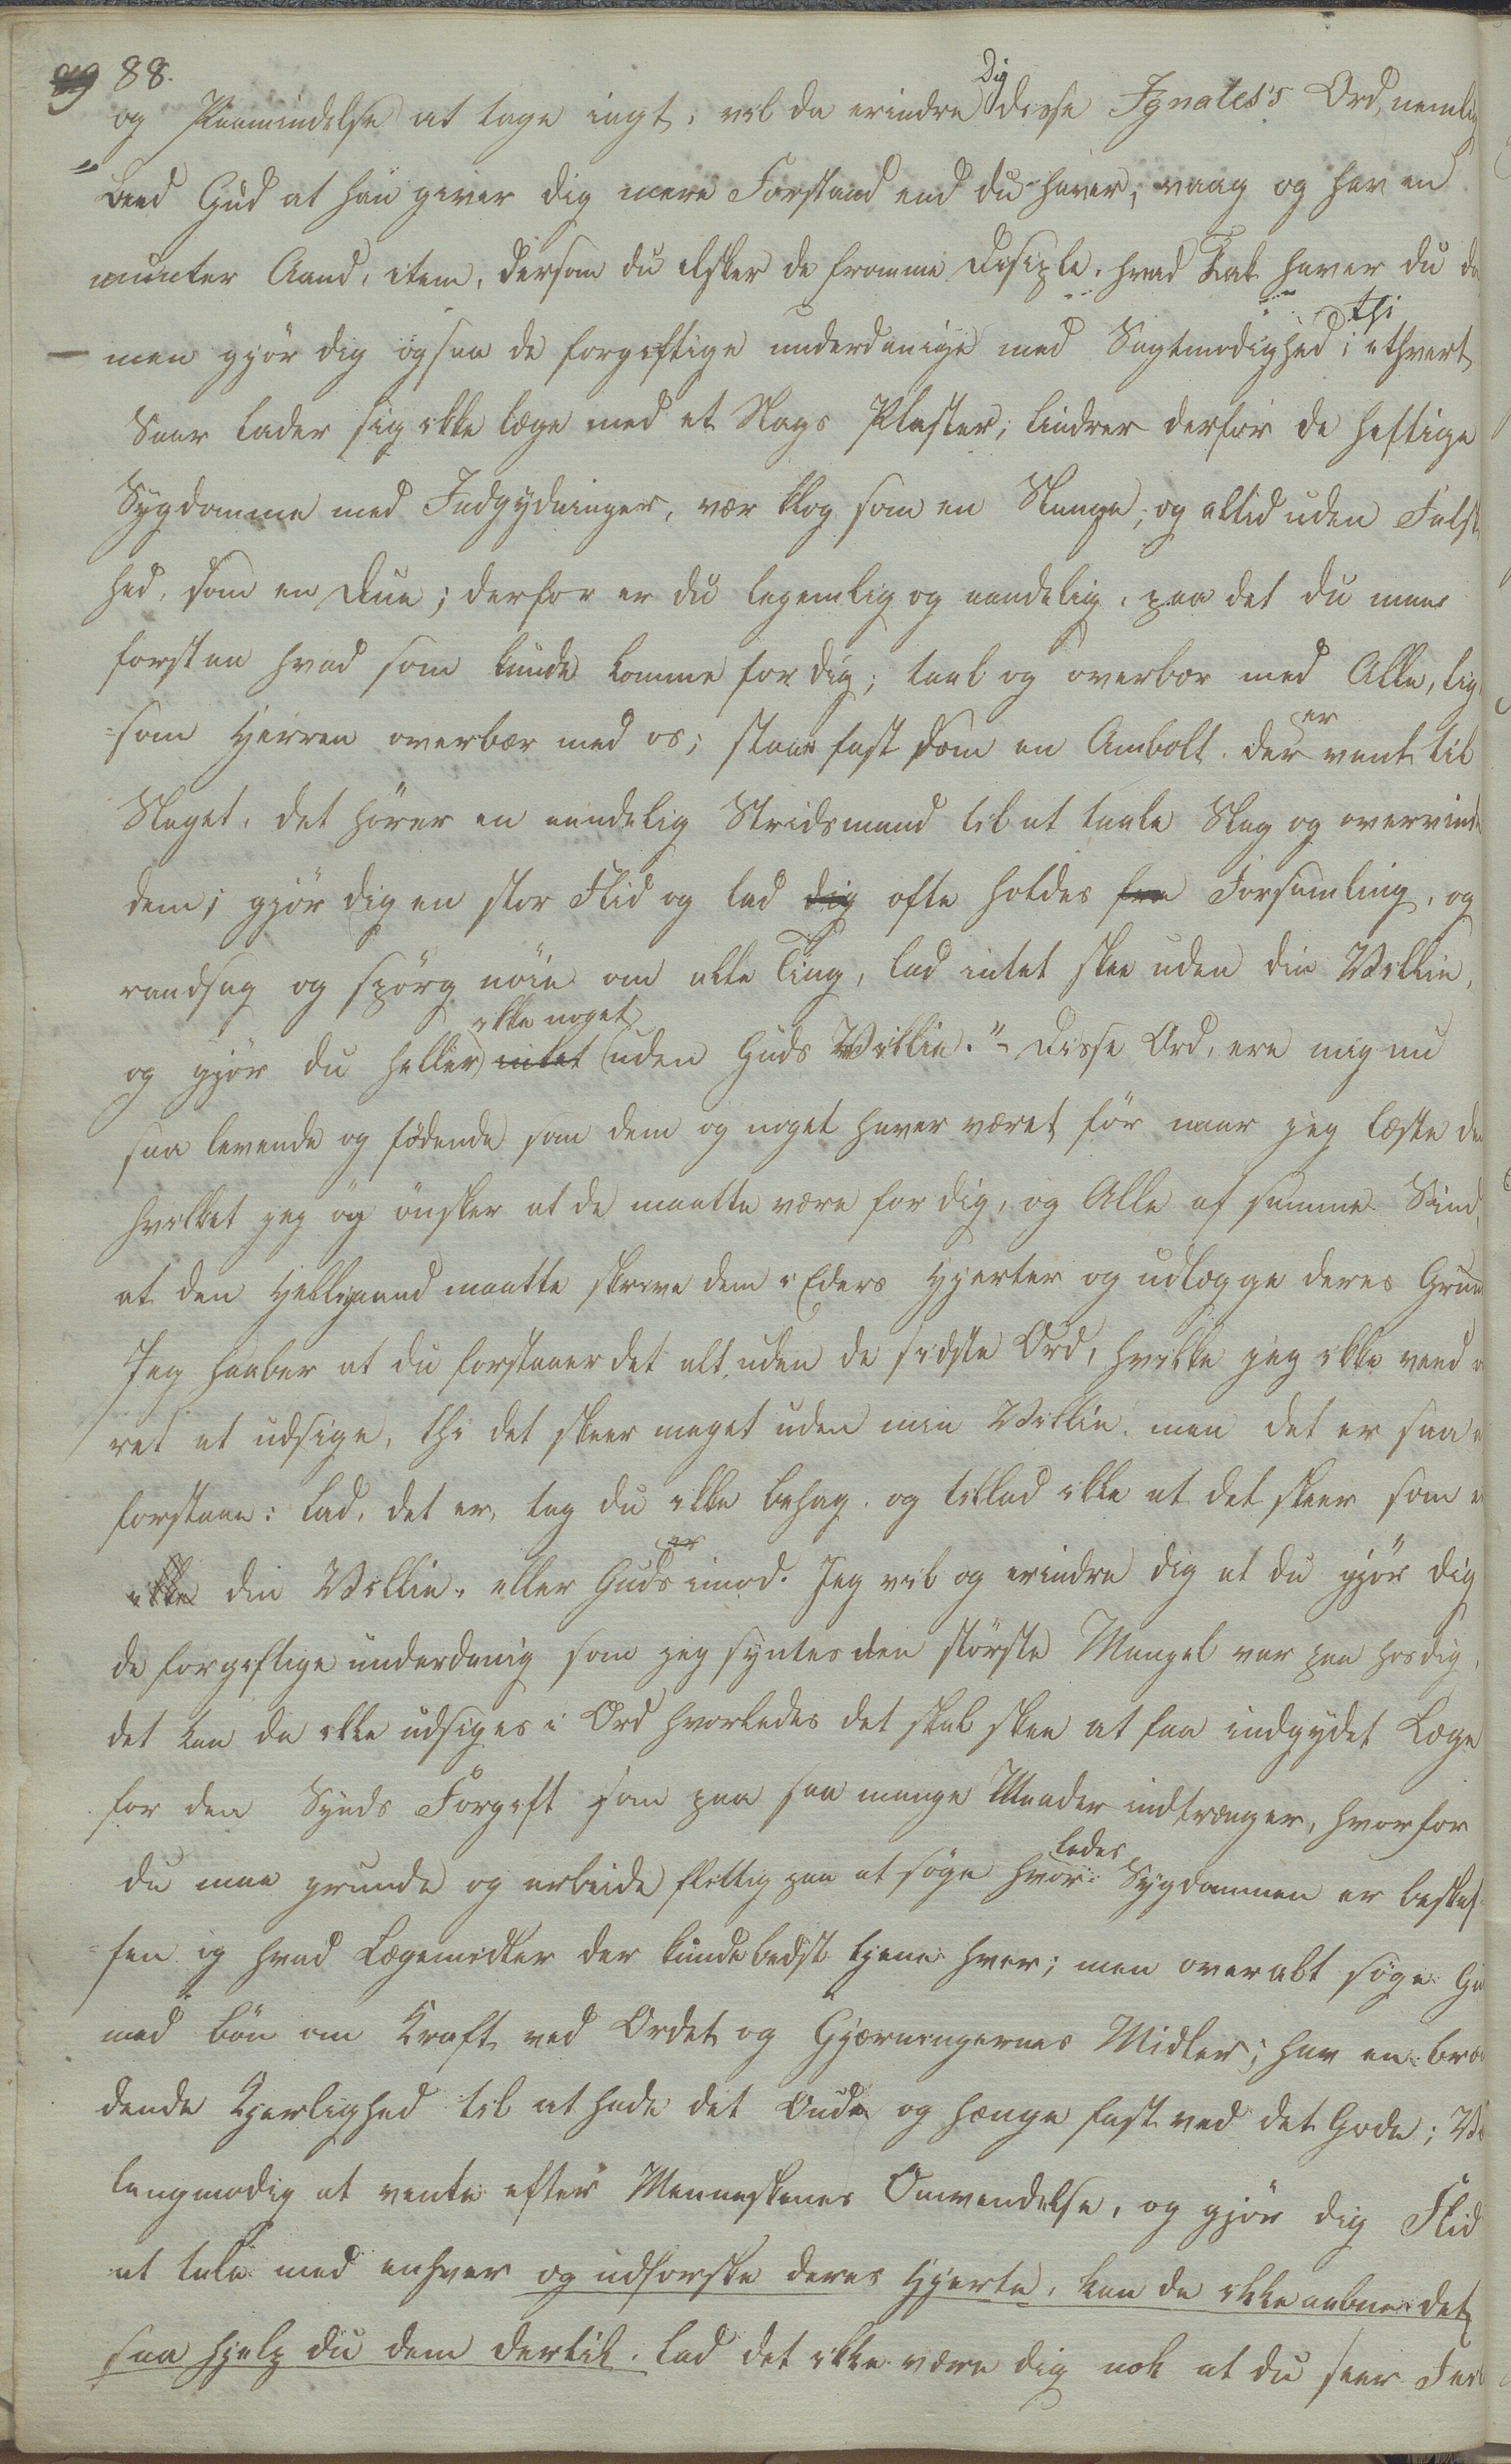 88.
og Paamindelse at tage iagt; vil da erindre Dig disse Ignates's Ord, nemlig
"Beed Gud at han giver dig mere Forstand end du haver; vaag og hav en
munter Aand, item, dersom du elsker de fromme Disiple, hvad Tak haver du da
men gjör dig ogsaa de forgiftige underdanige med Sagtmodighed; thi ethvert
Saar lader sig ikke læge med et Slags Plaster; lindrer derfor de heftige
Sygdomme med Indgydninger, vær klog som en Slange, og altid uden Falsk
hed, som en Due; derfor er du legemlig og aandelig, paa det du maae
forstaa hvad som kunde komme for dig; taal og overbær med Alle, lig
=som Herren overbær med os; staae fast som en Ambolt, der er vant til
Slaget, det hörer en aandelig Stridsmand til at taale Slag og overvinde
dem; gjör dig en stor Flid og lad dig ofte holdes fra Forsamling, og
randsag og spörg nöie om alle Ting, lad intet skee uden din Villie,
og gjör du heller intet ikke noget uden Guds Villie." - Disse Ord, ere mig nu
saa levende og födende som dem og noget haver været för naar jeg læste dem
hvilket jeg og önsker at de maatte være for dig, og Alle af samme Sind,
at den Helligaand maatte skrive dem i Eders Hjerter og udlægge deres Grund
Jeg haaber at du forstaaer det alt, uden de sidste Ord, hvilke jeg ikke veed
ret at udsige, thi det skeer meget uden min Villie, men det er saa
forstaae: lad, det er, tag du ikke behag, og tillad ikke at det skeer som er
ikke din Villie, eller Guds er imod. Jeg vil og erindre dig at du gjör dig
de forgiftige underdanig som jeg syntes den störste Mangel var paa hos dig,
det kan da ikke udsiges i Ord hvorledes det skal skee at faa indgydet Læge
for den Synds Forgift som paa saa mange Maader indtrænger, hvorfor
du maa grunde og arbeide flittig paa at söge hvorledes Sygdommen er beskaf
=fen og hvad Lægemidler der kunde bedst tjene hver; men over alt söge Gud
med bön om Kraft ved Ordet og Gjærningernes Midler; hav en bræn
dende Kjerlighed til at hade det Onde og hænge fast ved det Gode;
langmodig at vente efter Menneskenes Omvendelse, og gjör dig Flid
at tale med enhver og udforske deres Hjerte, kan de ikke aabne det
saa hjelp du dem dertil. lad det ikke være dig nok at du seer